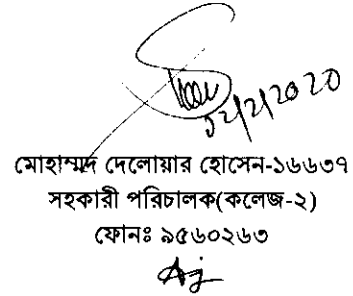 ১২/২/2020
মোহাম্মদ দেলোয়ার হোসেন-১৬৬৩৭
সহকারী পরিচালক(কলেজ-২)
ফোনঃ ৯৫৬০২৬৩